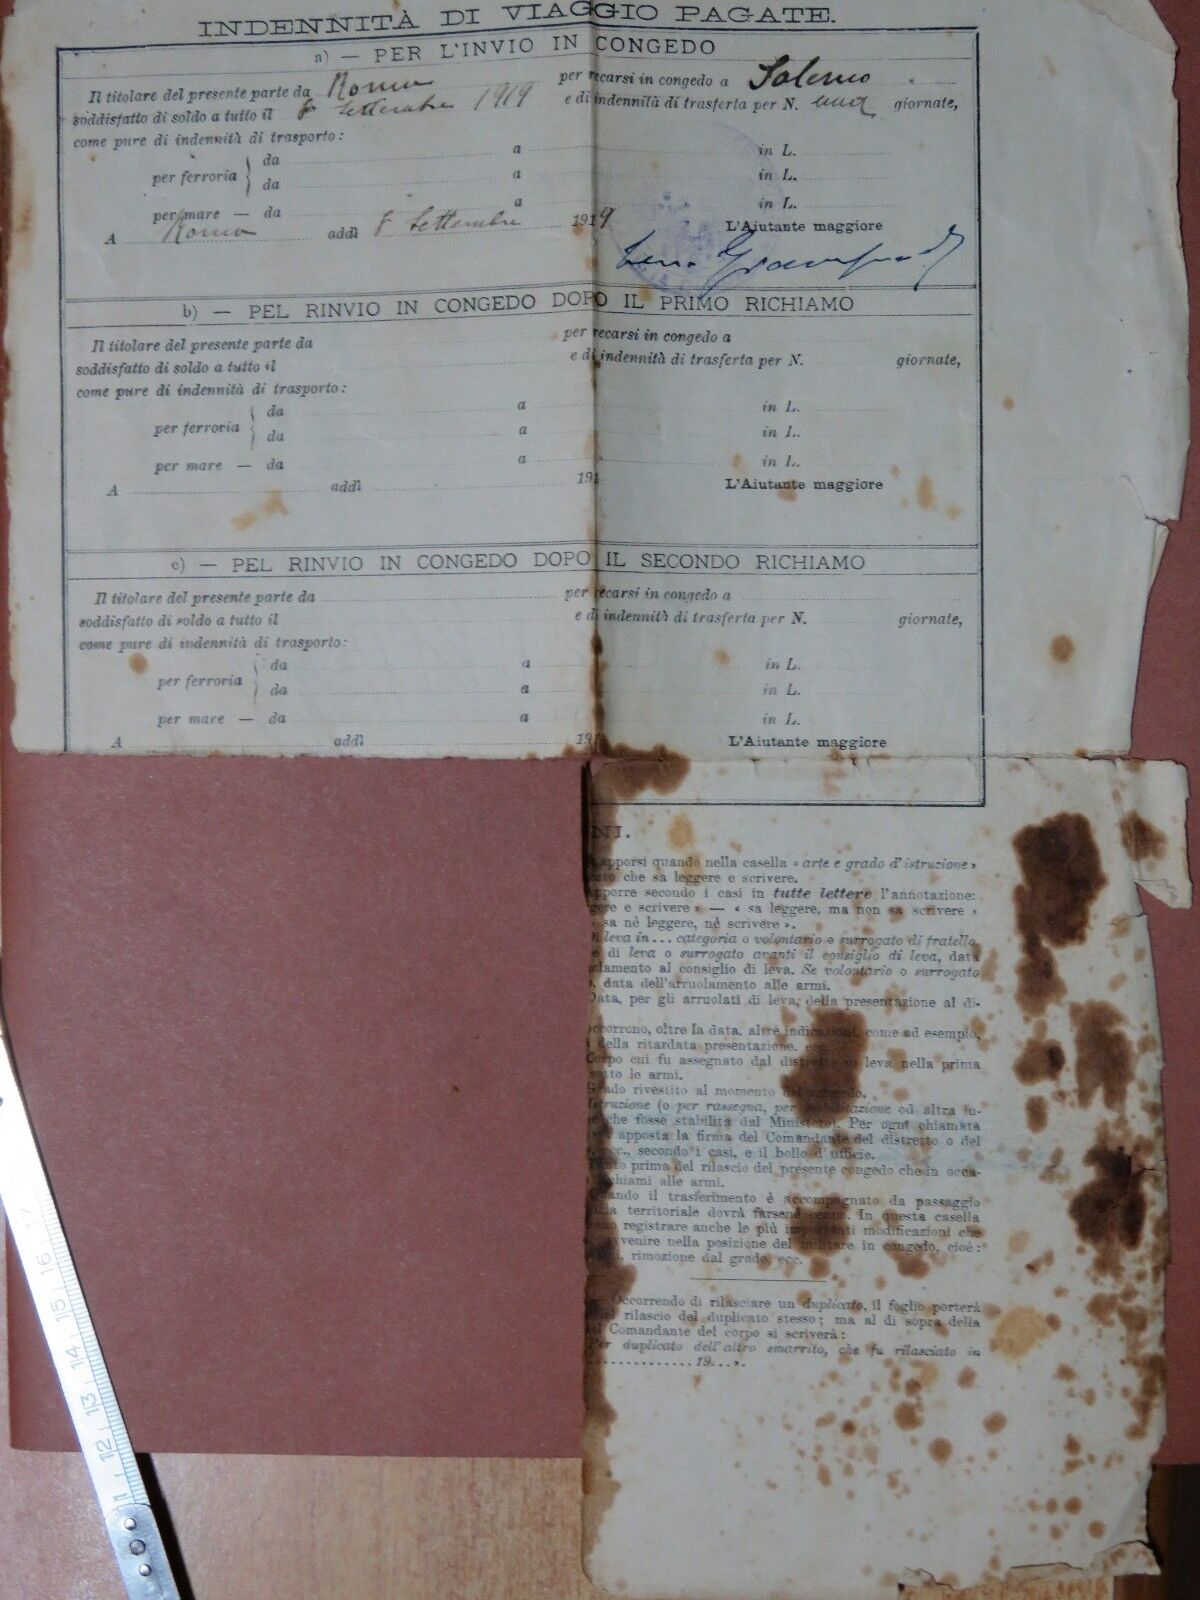 INDENNITÀ DI VIAGGIO PAGATE.
a) — PER L'INVIO IN CONGEDO
Il titolare del presente parte da Roma per recarsi in congedo a Salerno
soddisfatto di soldo a tutto il 8 Settembre 1919 e di indennità di trasferta per N. una giornate,
come pure di indennità di trasporto:
per ferrovia { da a in L.
da a in L.
per mare — da a in L.
A Roma addì 8 Settembre 1919 L'Aiutante maggiore
b) — PEL RINVIO IN CONGEDO DOPO IL PRIMO RICHIAMO
Il titolare del presente parte da per recarsi in congedo a
soddisfatto di soldo a tutto il e di indennità di trasferta per N. giornate,
come pure di indennità di trasporto:
per ferrovia { da a in L.
da a in L.
per mare — da a in L.
A addì 191 L'Aiutante maggiore
c) — PEL RINVIO IN CONGEDO DOPO IL SECONDO RICHIAMO
Il titolare del presente parte da per recarsi in congedo a
soddisfatto di soldo a tutto il e di indennità di trasferta per N. giornate,
come pure di indennità di trasporto:
per ferrovia { da a in L.
da a in L.
per mare — da a in L.
A addì 191 L'Aiutante maggiore
NI.
apporsi quando nella casella « arte e grado d'istruzione »
che sa leggere e scrivere.
apporre secondo i casi in tutte lettere l'annotazione:
gere e scrivere » — « sa leggere, ma non sa scrivere »
sa nè leggere, nè scrivere ».
leva in... categoria o volontario o surrogato di fratello,
e di leva o surrogato avanti il consiglio di leva, data
olamento al consiglio di leva. Se volontario o surrogato
, data dell'arruolamento alle armi.
Data, per gli arruolati di leva, della presentazione al di-
occorrono, oltre la data, altre indicazioni, come ad esempio,
della ritardata presentazione, ecc.
Corpo cui fu assegnato dal distretto di leva nella prima
sotto le armi.
Grado rivestito al momento del congedo.
Istruzione (o per rassegna, per mobilitazione od altra
che fosse stabilita dal Ministero). Per ogni chiamata
apposta la firma del Comandante del distretto o del
ecc., secondo i casi, e il bollo d'ufficio.
prima del rilascio del presente congedo che in occa-
chiami alle armi.
Quando il trasferimento è accompagnato da passaggio
territoriale dovrà farsene cenno. In questa casella
registrare anche le più importanti modificazioni che
avvenire nella posizione del militare in congedo, cioè:
rimozione dal grado, ecc.
Occorrendo di rilasciare un duplicato, il foglio porterà
rilascio del duplicato stesso; ma al di sopra della
Comandante del corpo si scriverà:
Per duplicato dell'altro smarrito, che fu rilasciato in
..............19...».
17
16
15
14
13
12